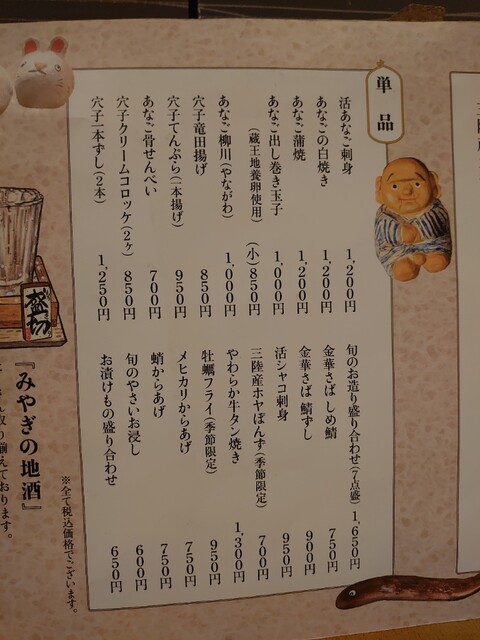 単品
活あなご刺身 1,200円
あなごの白焼き 1,200円
あなご蒲焼 1,200円
あなご出し巻き玉子 1,000円
（蔵王地養卵使用） （小）850円
あなご柳川（やながわ） 1,000円
穴子竜田揚げ 850円
穴子てんぷら（一本揚げ） 950円
あなご骨せんべい 700円
穴子クリームコロッケ（2ヶ） 850円
穴子一本ずし（2本） 1,250円
旬のお造り盛り合わせ（7点盛） 1,650円
金華さば しめ鯖 750円
金華さば 鯖ずし 900円
活シャコ刺身 950円
三陸産ホヤぽんず（季節限定） 700円
やわらか牛タン焼き 1,300円
牡蠣フライ（季節限定） 950円
メヒカリからあげ 750円
蛸からあげ 750円
旬のやさいお浸し 600円
お漬けもの盛り合わせ 650円
※全て税込価格でございます。
盛切
『みやぎの地酒』
取り揃えております。